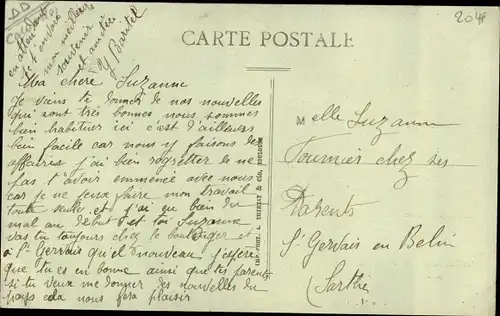 CARTE POSTALE
en attendant
de t'
mon meilleur
souvenir
et amitié
Y Baritel
Ma chère Suzanne
Je viens te donner de nos nouvelles
qui sont très bonnes nous sommes
bien habituer ici c'est d'ailleurs
bien facile car nous y faisons des
affaires j'ai bien regretter de ne
pas t'avoir emmenée avec nous
car je ne peux faire mon travail
toute seule et j'ai eu bien du
mal au début et toi Suzanne
vas tu toujours chez le boulanger et a
St Gervais qu'el nouveau j'espère
que tu es en bonne ainsi que tes parents
si tu veux me donner des nouvelles du
pays cela nous fera plaisir
Melle Suzanne
Fournier chez ses
Parents
St Gervais en Belin
(Sarthe
2048